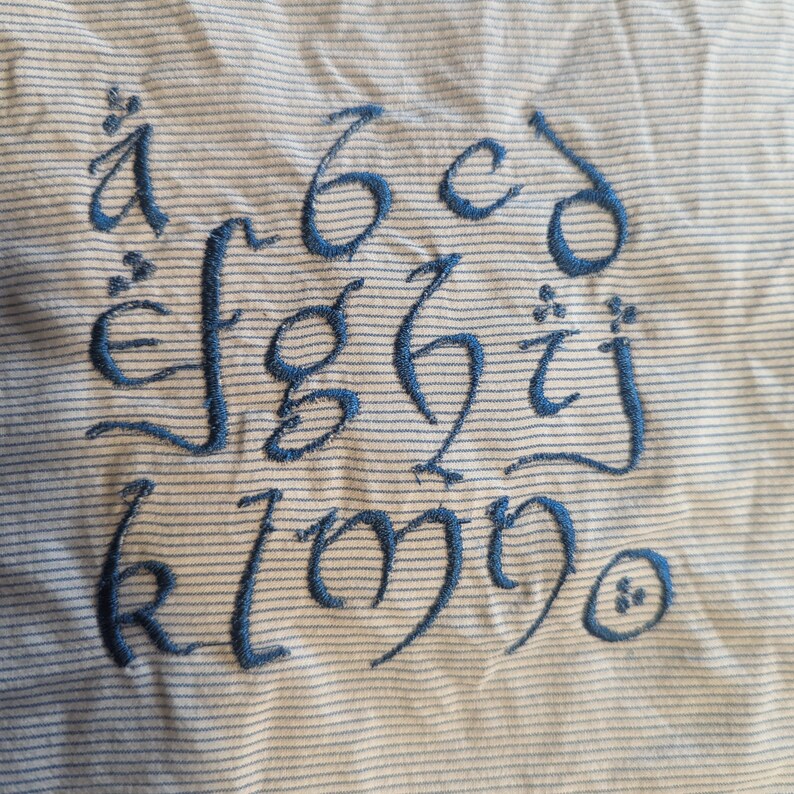 a b c d
e f g h i j
k l m n o